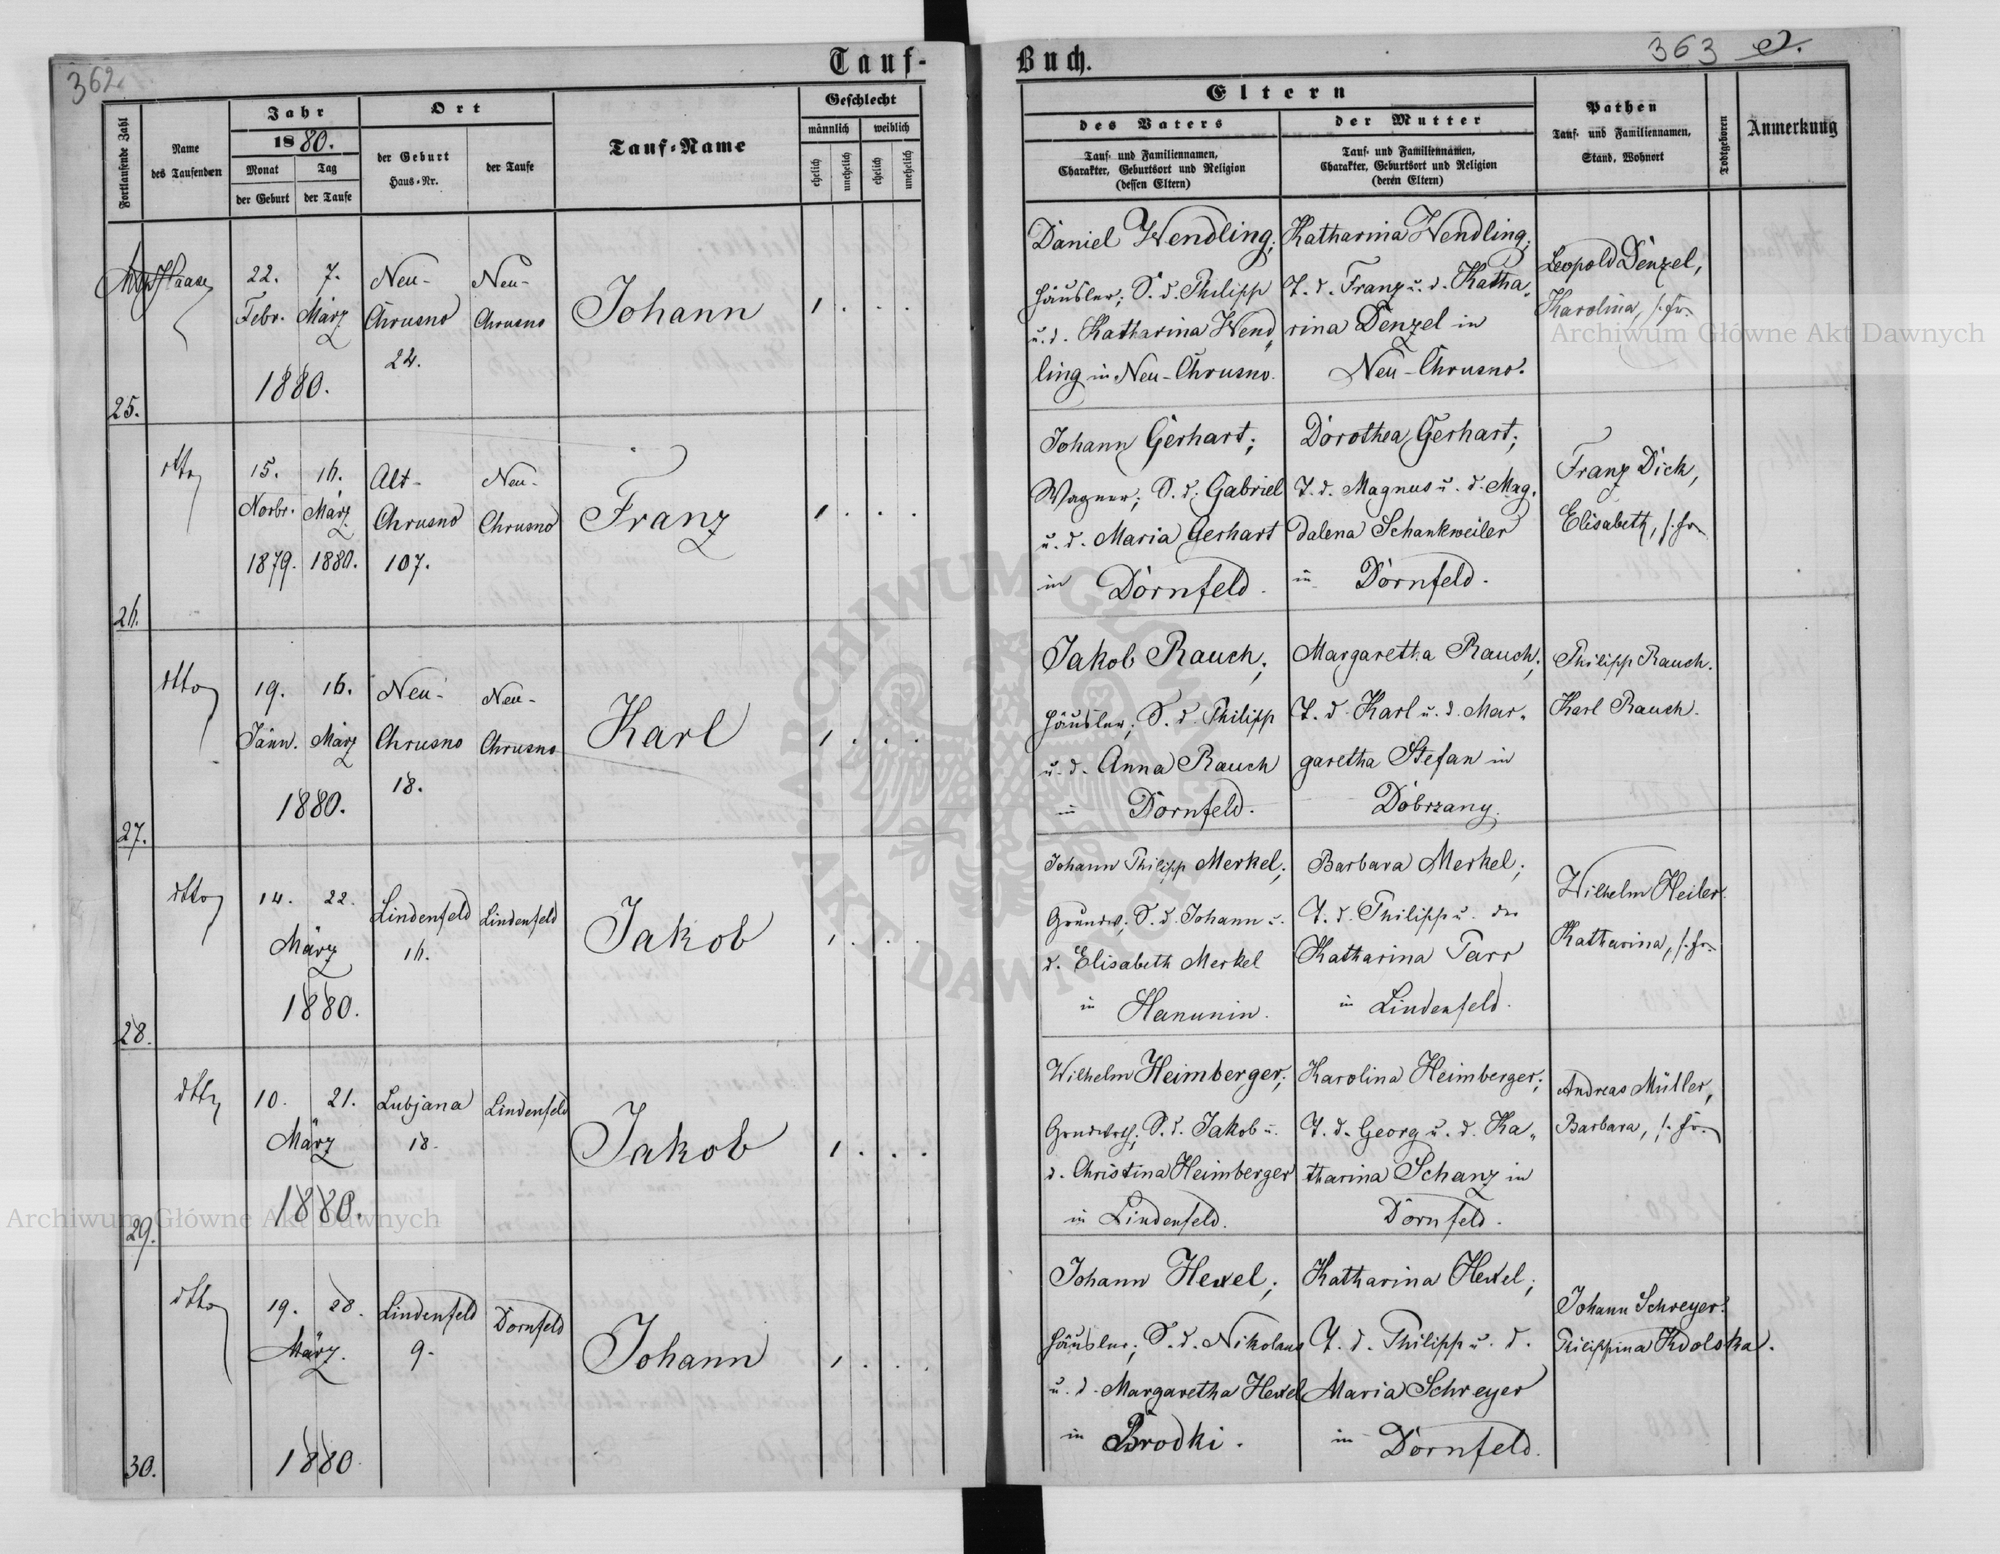 362.
Tauf-
Fortlaufende Zahl
Name
des Taufenden
Jahr
1880.
Monat
Tag
der Geburt
der Taufe
Ort
der Geburt
Haus-Nr.
der Taufe
Tauf-Name
Geschlecht
männlich
weiblich
ehelich
unehelich
ehelich
unehelich
25.
Haase
22. 7.
Febr. März
1880.
Neu-
Chrusno
22.
Neu-
Chrusno
Johann
1 . . .
26.
dtto
15. 16.
Novbr. März
1879. 1880.
Alt-
Chrusno
107.
Neu-
Chrusno
Franz
1 . . .
27.
dtto
19. 16.
Jänn. März
1880.
Neu-
Chrusno
18.
Neu-
Chrusno
Karl
1 . . .
28.
dtto
14. 22.
März
1880.
Lindenfeld
16.
Lindenfeld
Jakob
1 . . .
29.
dtto
10. 21.
März
1880.
Lubjana
18.
Lindenfeld
Jakob
1 . . .
30.
dtto
19. 28.
März.
1880
Lindenfeld
9.
Dornfeld
Johann
1 . . .
Buch.
363
Eltern
des Vaters
Tauf- und Familiennamen,
Charakter, Geburtsort und Religion
(dessen Eltern)
der Mutter
Tauf- und Familiennamen,
Charakter, Geburtsort und Religion
(deren Eltern)
Pathen
Tauf- und Familiennamen,
Stand, Wohnort
Todtgeboren
Anmerkung
Daniel Wendling;
Häusler; S. d. Philipp
u. d. Katharina Wend„
ling in Neu-Chrusno.
Katharina Wendling;
T. d. Franz u. d. Katha„
rina Denzel in
Neu-Chrusno.
Leopold Denzel,
Karolina, s. Fr.
Johann Gerhart;
Wagner; S. d. Gabriel
u. d. Maria Gerhart
in Dornfeld.
Dorothea Gerhart;
T. d. Magnus u. d. Mag„
dalena Schankweiler
in Dornfeld.
Franz Dick,
Elisabeth, s. Fr.
Jakob Rauch;
Häusler; S. d. Philipp
u. d. Anna Rauch
in Dornfeld.
Margaretha Rauch;
T. d. Karl u. d. Mar„
garetha Stefan in
Dobrzany.
Philipp Rauch.
Karl Rauch.
Johann Philipp Merkel;
Grundw; S. d. Johann u.
d. Elisabeth Merkel
in Hanunin.
Barbara Merkel;
T. d. Philipp u. der
Katharina Parr
in Lindenfeld.
Wilhelm Heiler.
Katharina, s. Fr.
Wilhelm Heimberger;
Grundwrth; S. d. Jakob u.
d. Christina Heimberger
in Lindenfeld.
Karolina Heimberger;
T. d. Georg u. d. Ka„
tharina Schanz in
Dornfeld.
Andreas Müller,
Barbara, s. Fr.
Johann Hexel;
Häusler; S. d. Nikolaus
u. d. Margaretha Hexel
in Brodki.
Katharina Hexel;
T. d. Philipp u. d.
Maria Schreyer
in Dornfeld.
Johann Schreyer.
Philippina Kdolska.
Archiwum Główne Akt Dawnych
Archiwum Główne Akt Dawnych
ARCHIWUM GŁÓWNE AKT DAWNYCH